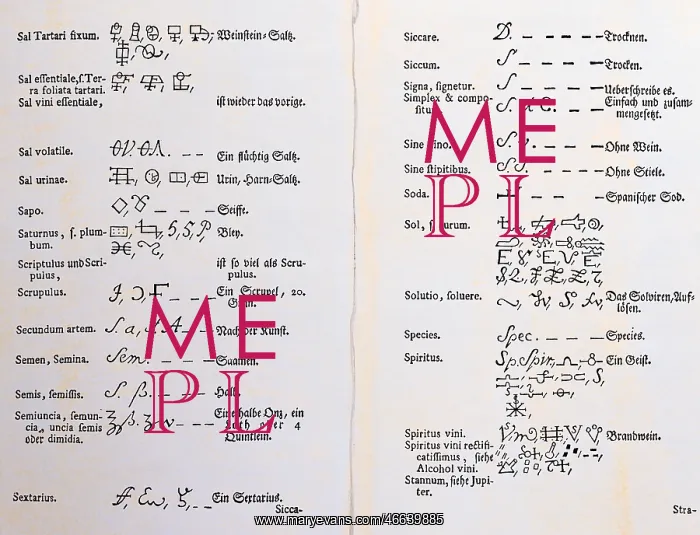 Sal Tartari fixum. Weinstein-Saltz.
Sal essentiale, s. Ter-
ra foliata tartari.
Sal vini essentiale, ist wieder das vorige.
Sal volatile. Ein flüchtig Saltz.
Sal urinae. Urin, Harn-Saltz.
Sapo. Seiffe.
Saturnus, s. plum-
bum. Bley.
Scriptulus und Scri-
pulus, ist so viel als Scru-
pulus.
Scrupulus. Ein Scrupel, 20.
Gran.
Secundum artem. S. a, S. A. Nach der Kunst.
Semen, Semina. Sem. Saamen.
Semis, semissis. S. ß. Halb.
Semiuncia, semun-
cia, uncia semis
oder dimidia. Eine halbe Ontz, ein
Loth oder 4
Quintlein.
Sextarius. Ein Sextarius.
Sicca-
Siccare. D. Trocknen.
Siccum. S Trocken.
Signa, signetur. S Ueberschreibe es.
Simplex & compo-
situ Einfach und zusam-
mengesetzt.
Sine vino. Ohne Wein.
Sine stipitibus. S. S. Ohne Stiele.
Soda. Spanischer Sod.
Sol, aurum.
Solutio, soluere. Das Solviren, Auf-
lösen.
Species. Spec. Species.
Spiritus. Sp. Spir, Ein Geist.
Spiritus vini. Brandwein.
Spiritus vini rectifi-
catissimus, siehe
Alcohol vini.
Stannum, siehe Jupi-
ter.
Stra-
ME
PL
ME
PL
www.maryevans.com/46639885